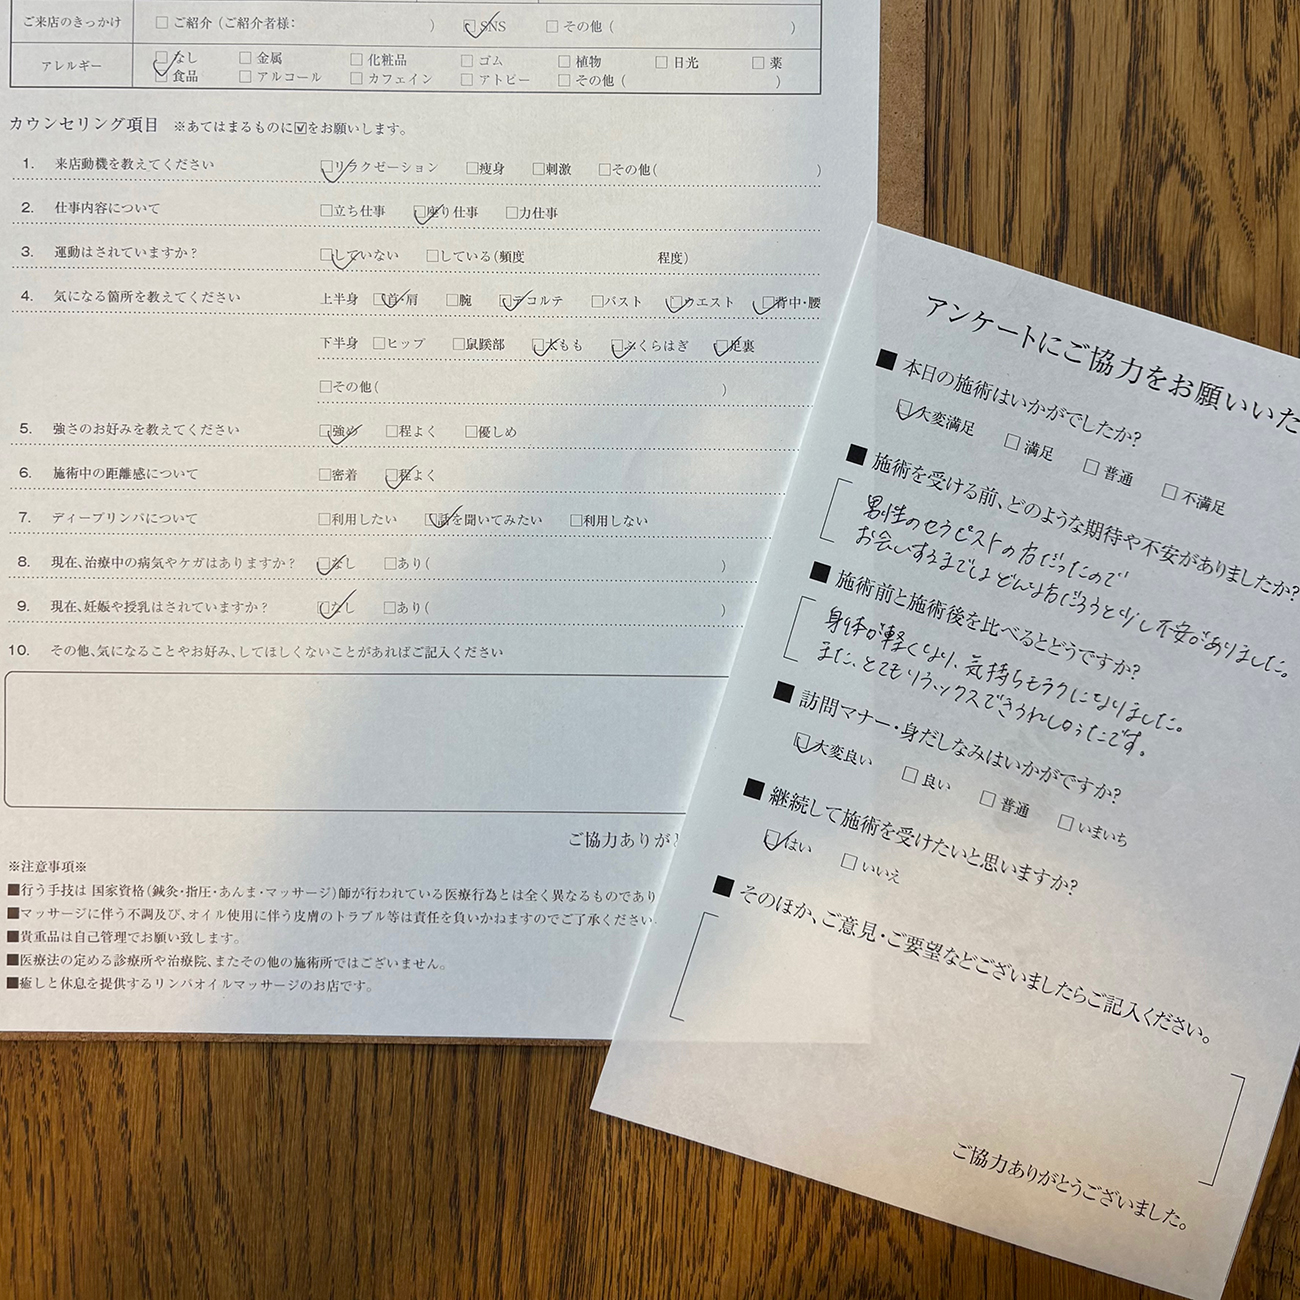 ご来店のきっかけ □ご紹介（ご紹介者様: ） ☑SNS □その他（ ）
アレルギー ☑なし □金属 □化粧品 □ゴム □植物 □日光 □薬
□食品 □アルコール □カフェイン □アトピー □その他（ ）
カウンセリング項目 ※あてはまるものに☑をお願いします。
1. 来店動機を教えてください ☑リラクゼーション □痩身 □刺激 □その他( )
2. 仕事内容について □立ち仕事 ☑座り仕事 □力仕事
3. 運動はされていますか? ☑していない □している(頻度 程度)
4. 気になる箇所を教えてください 上半身 ☑首・肩 □腕 ☑デコルテ □バスト ☑ウエスト ☑背中・腰
下半身 □ヒップ □鼠蹊部 ☑太もも ☑ふくらはぎ ☑足裏
□その他( )
5. 強さのお好みを教えてください ☑強め □程よく □優しめ
6. 施術中の距離感について □密着 ☑程よく
7. ディープリンパについて □利用したい ☑話を聞いてみたい □利用しない
8. 現在、治療中の病気やケガはありますか? ☑なし □あり( )
9. 現在、妊娠や授乳はされていますか? ☑なし □あり( )
10. その他、気になることやお好み、してほしくないことがあればご記入ください
ご協力ありがと
※注意事項※
■行う手技は 国家資格(鍼灸・指圧・あんま・マッサージ)師が行われている医療行為とは全く異なるものであり
■マッサージに伴う不調及び、オイル使用に伴う皮膚のトラブル等は責任を負いかねますのでご了承ください。
■貴重品は自己管理でお願い致します。
■医療法の定める診療所や治療院、またその他の施術所ではございません。
■癒しと休息を提供するリンパオイルマッサージのお店です。
アンケートにご協力をお願いいた
■ 本日の施術はいかがでしたか?
☑大変満足 □満足 □普通 □不満足
■ 施術を受ける前、どのような期待や不安がありましたか?
男性のセラピストの方だったので
お会いするまではどんな方だろうと少し不安がありました。
■ 施術前と施術後を比べるとどうですか?
身体が軽くなり、気持ちもラクになりました。
また、とてもリラックスできうれしかったです。
■ 訪問マナー・身だしなみはいかがですか?
☑大変良い □良い □普通 □いまいち
■ 継続して施術を受けたいと思いますか?
☑はい □いいえ
■ そのほか、ご意見・ご要望などございましたらご記入ください。
ご協力ありがとうございました。